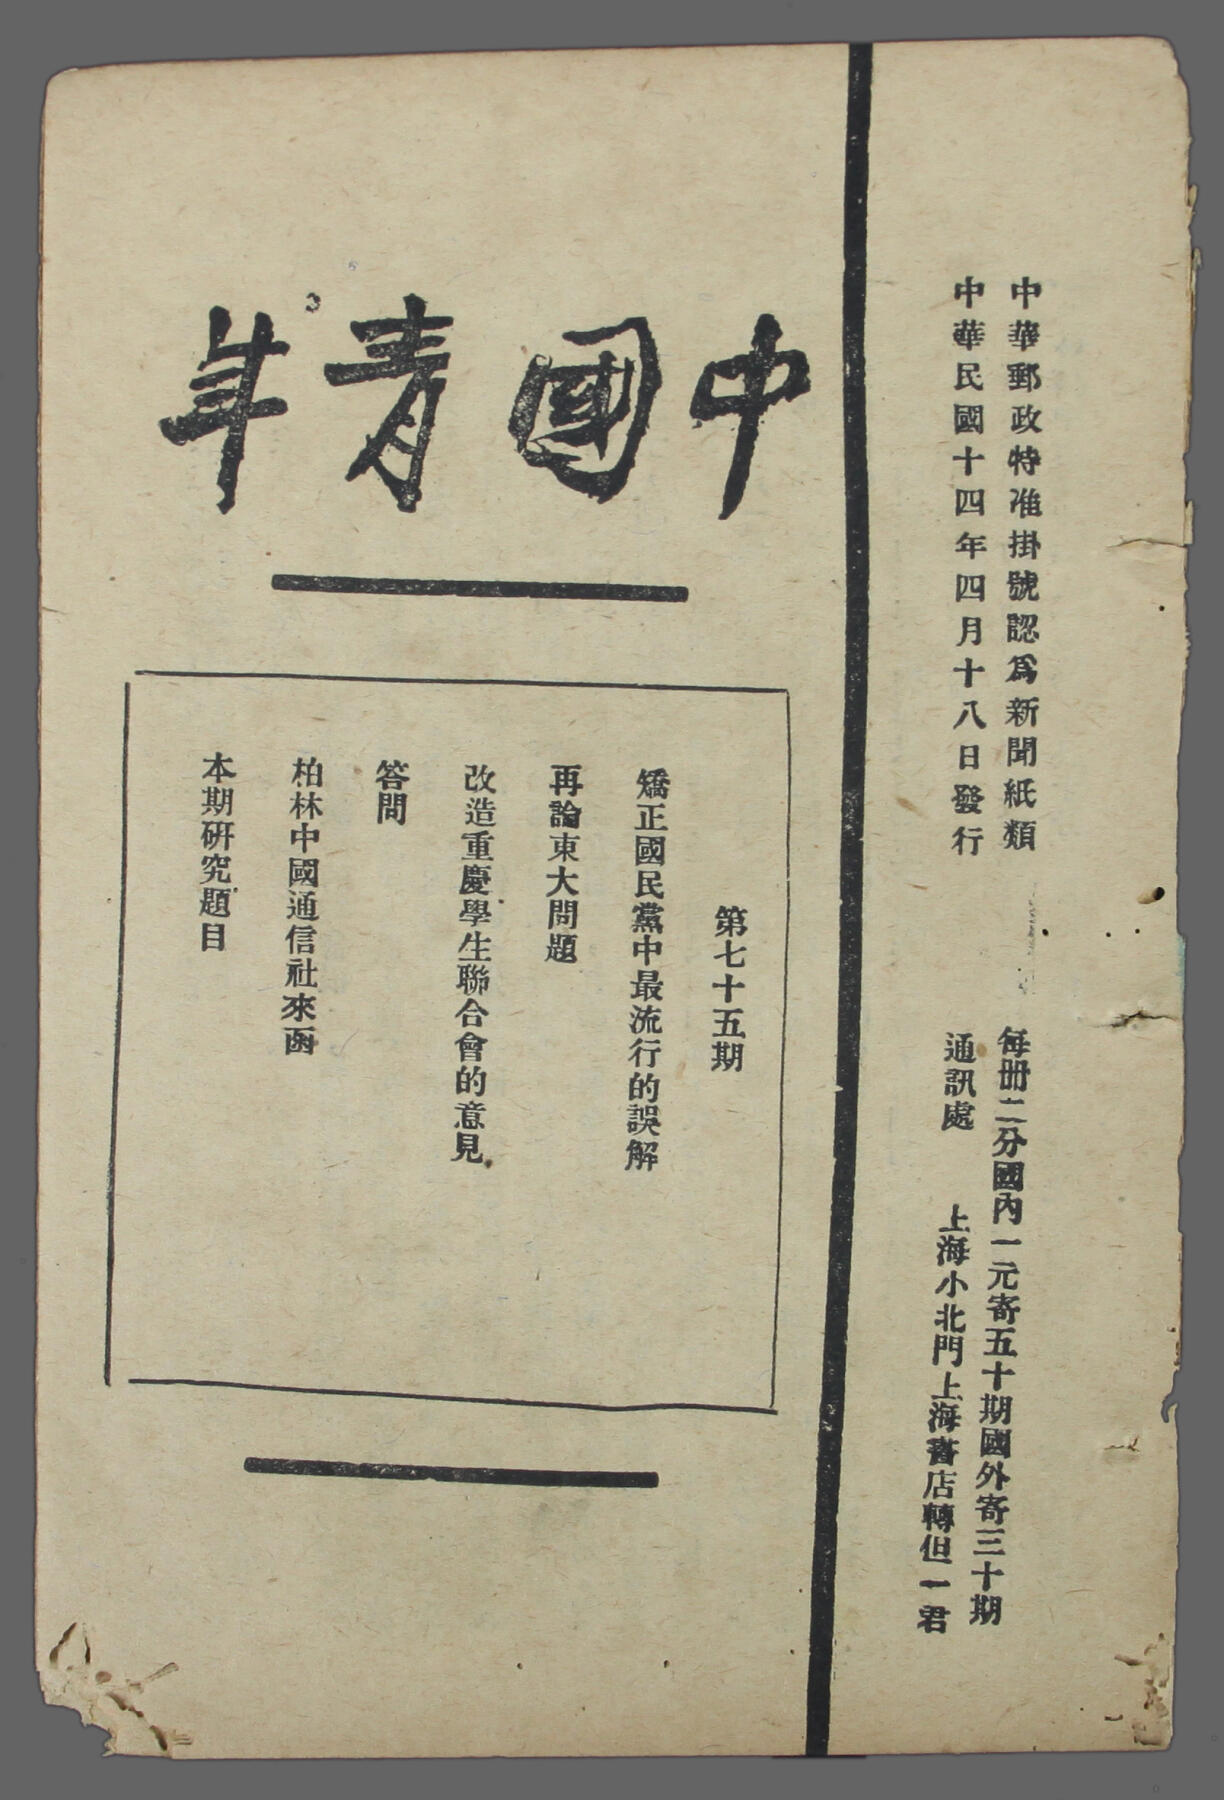 中華郵政特准掛號認爲新聞紙類
中華民國十四年四月十八日發行
每冊二分國內一元寄五十期國外寄三十期
通訊處 上海小北門上海書店轉但一君
中國青年
第七十五期
矯正國民黨中最流行的誤解
再論東大問題
改造重慶學生聯合會的意見
答問
柏林中國通信社來函
本期研究題目